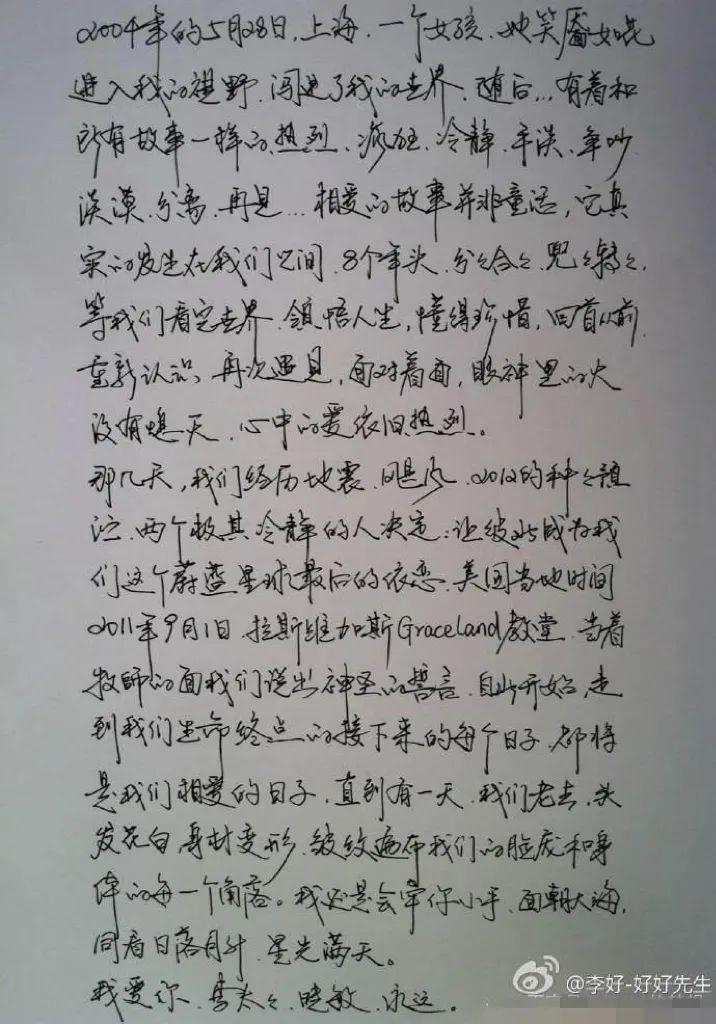 2004年的5月28日,上海,一个女孩,她笑靥如花
进入我的视野,闯进了我的世界,随后…有着和
所有故事一样的热烈、疯狂、冷静、平淡、争吵
淡漠、分离、再见…相爱的故事并非童话,它真
实的发生在我们之间,8个年头,分々合々,兜々转々,
等我们看完世界,领悟人生,懂得珍惜,回首从前,
重新认识,再次遇见,面对着面,眼神里的火
没有熄灭,心中的爱依旧热烈。
那几天,我们经历地震、飓风、2012的种々预
言,两个极其冷静的人决定:让彼此成为我
们这个蔚蓝星球最后的依恋。美国当地时间
2011年9月1日,拉斯维加斯Graceland教堂,当着
牧師的面我们说出神圣的誓言,自此开始,走
到我们生命终点的接下来的每个日子,都将
是我们相爱的日子,直到有一天,我们老去,头
发花白,身材变形,皱纹遍布我们的脸庞和身
体的每一个角落。我还是会牵你小手,面朝大海,
同看日落月升,星光满天。
我爱你,李太々,晓敏,永远。
@李好-好好先生